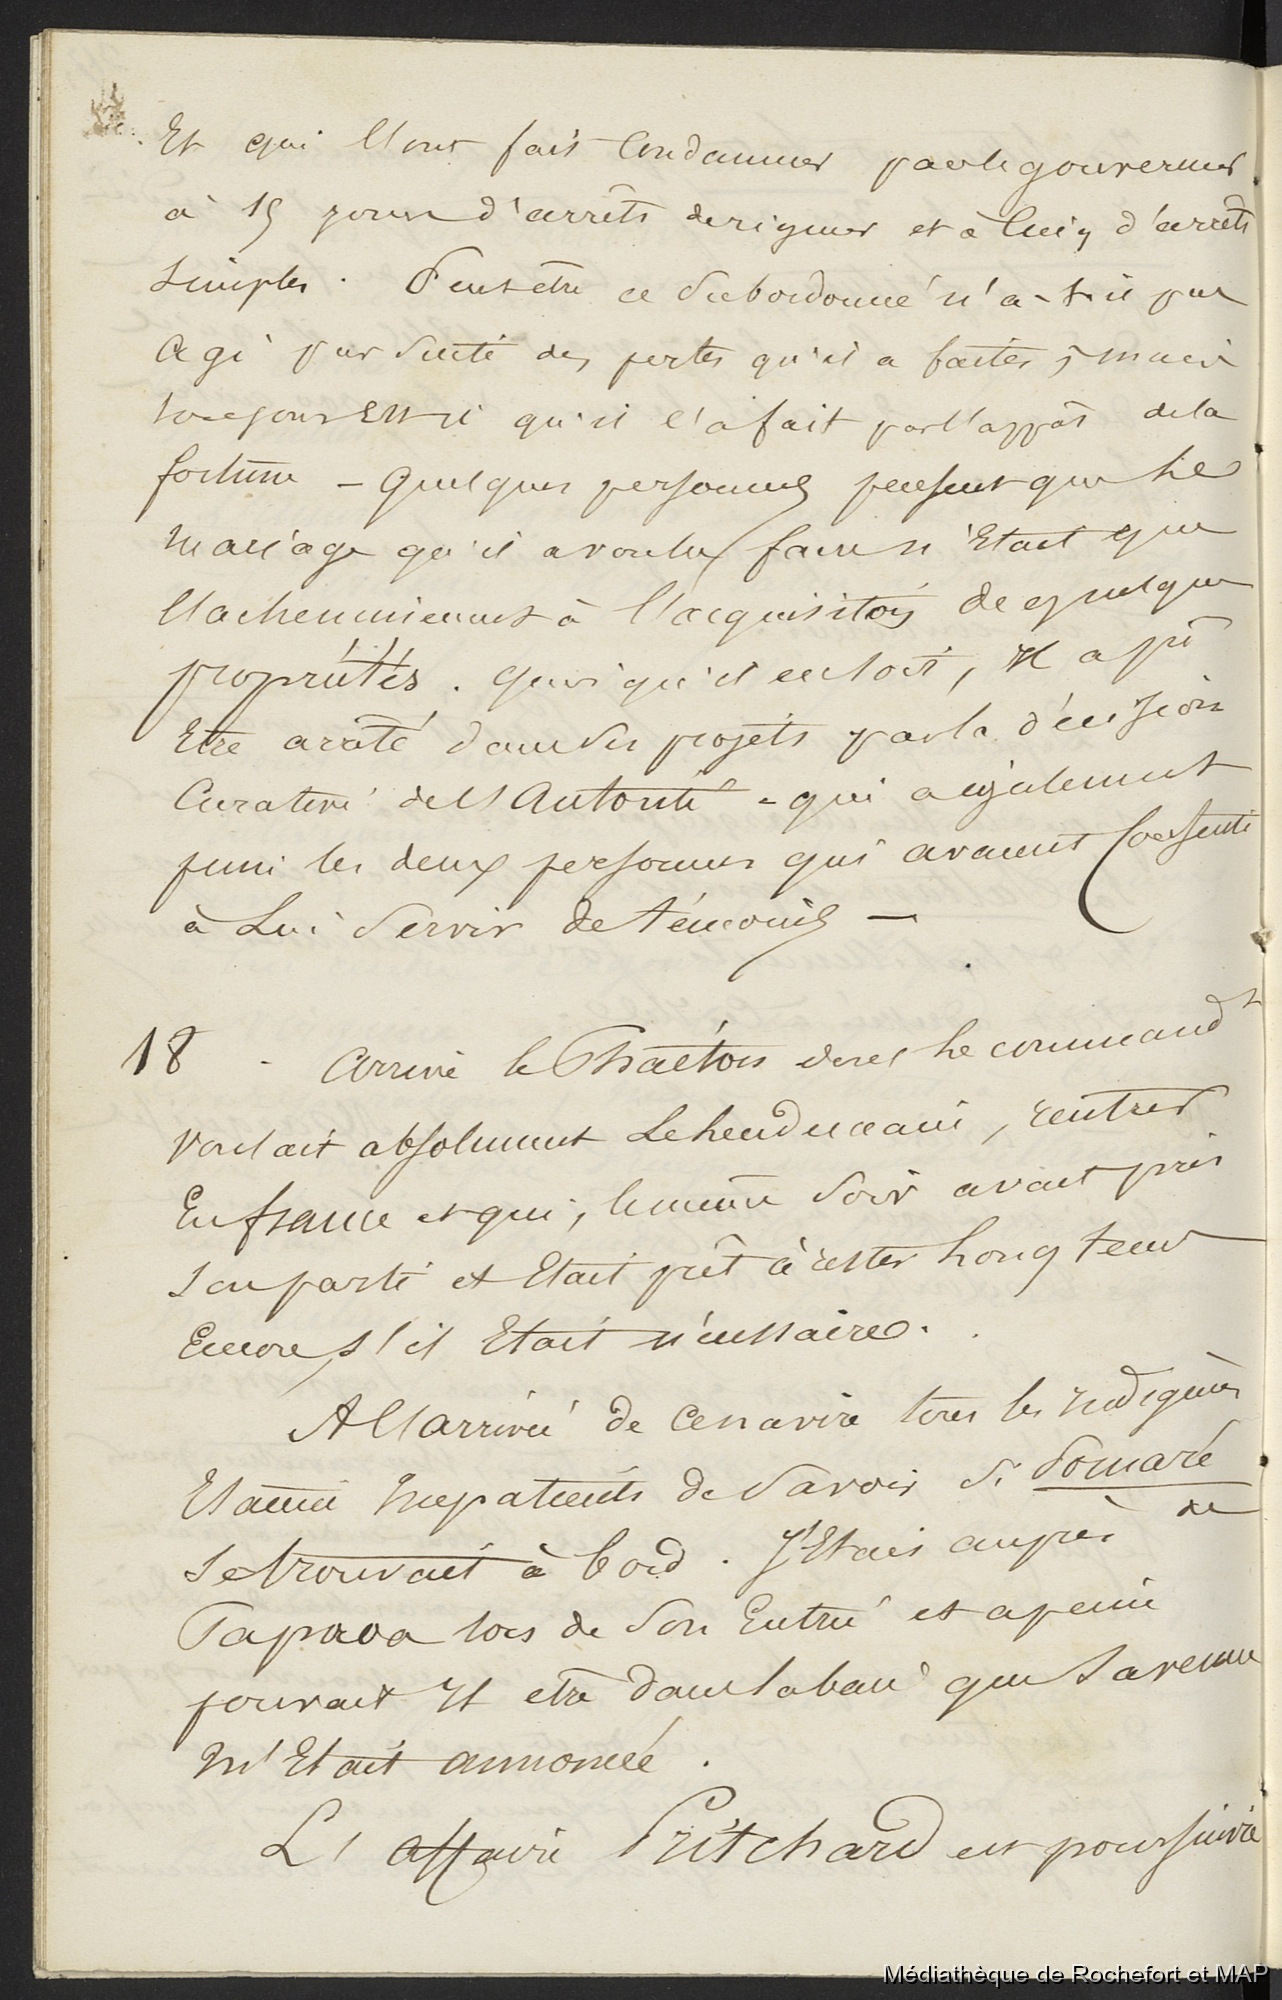 Et qui l'ont fait Condamner par le gouverneur
à 15 jours d'arrêts de rigueur et à Cinq d'arrêts
simples. Peut être ce subordonné n'a-t-il pas
agi par suite des pertes qu'il a faites, mais
toujours Est-il qu'il l'a fait par l'appât de la
fortune - Quelques personnes pensent que le
mariage qu'il a voulu faire n'Etait que
l'acheminement à l'acquisition de quelques
propriétés. Quoi qu'il en soit, Il a pû
Etre arrêté dans ses projets par la décision
de l'Autorité - qui a également
puni les deux personnes qui avaient Consenti
à Lui Servir de témoins -
18 - Arrivé le Phaéton dont le command^t
voulait absolument Le lendemain, rentrer
En france et qui, le même Soir avait pris
son parti et Etait prêt à rester longtems
Encore s'il Etait nécessaire.
A l'arrivée de ce navire tous les Indigènes
Etaient Impatients de Savoir Si Pomaré
se trouvait à bord. J'Etais auprès de
Tapooa lors de Son Entrée et a peine
pouvait Il etre dans la baie que Sa venue
m'Etait annoncée.
L'affaire Pritchard est poursuivie
Médiathèque de Rochefort et MAP